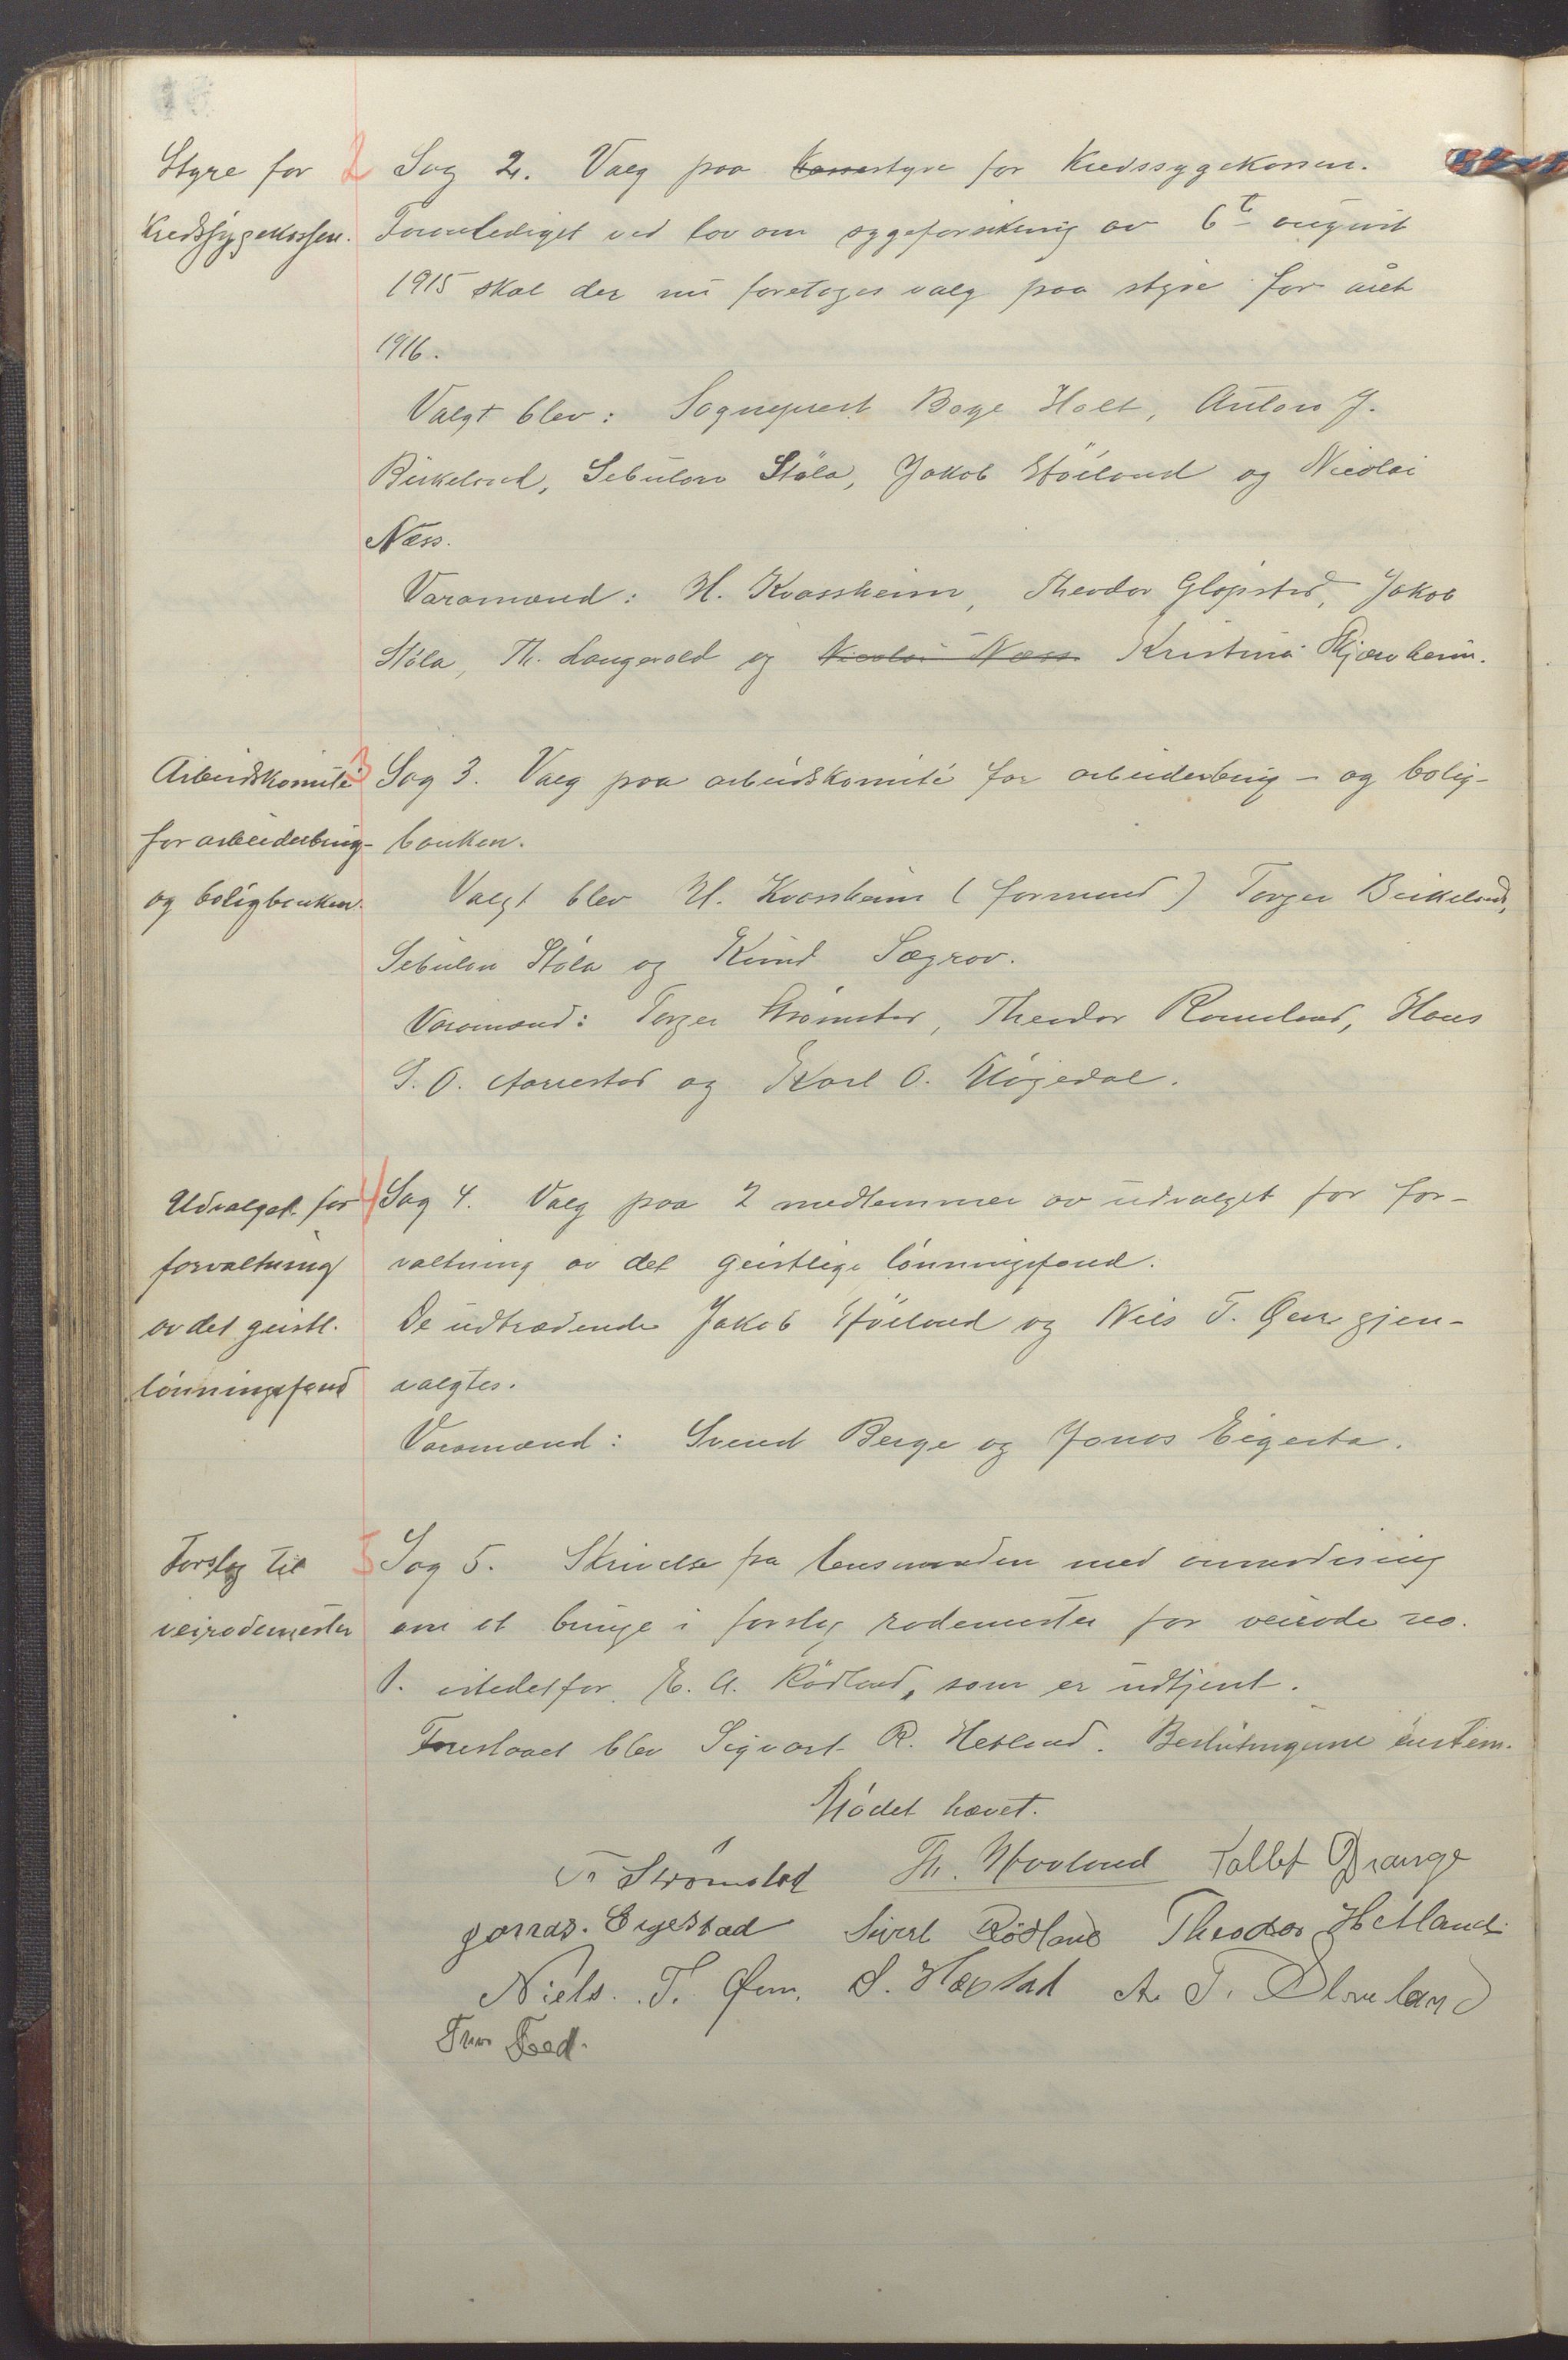 Styre for
Kredssygekassen.
2 Sag 2. Valg paa kassestyre for Kredssygekassen.
Foranlediget ved lov om sygeforsikring av 6te august
1915 skal der nu foretages valg paa styre for året
1916.
Valgt blev: Sogneprest Boye Holt, Anton J.
Birkeland, Sebulon Støla, Jakob Høiland og Nicolai
Næss.
Varamænd: H. Kvassheim, Theodor Glopstad, Jakob
Støla, Th. Laugevold og Nicolai Næss Kristine Skjævheim.
Arbeidskomité
for arbeiderbrug-
og boligbanken.
3 Sag 3. Valg paa arbeidskomité for arbeiderbrug- og bolig-
banken.
Valgt blev H. Kvassheim (formand) Torger Birkeland,
Sebulon Støla og Knud Sægrov.
Varamænd: Torger Strømstad, Theodor Rameland, Hans
S. O. Aarrestad og Karl O. Møgedal.
Udvalget for
forvaltning
av det geistl.
lønningsfond
4 Sag 4. Valg paa 2 medlemmer av udvalget for for-
valtning av det geistlige lønningsfond.
De udtrædende Jakob Høiland og Niels T. Øen gjen-
valgtes.
Varamænd: Svend Berge og Jonas Eigesta.
Forslag til
veirodemester
5 Sag 5. Skrivelse fra lensmanden med anmodning
om at bringe i forslag rodemester for veirode no.
1. istedetfor E. A. Rödland, som er udtjent.
Foreslaaet blev Sigvart R. Hetland. Beslutningerne enstem.
Mødet hævet.
T. Strømstad Th. Hovland Tallef Drange
Jonas. Eigestad Sivert Rødland Theodor Hetland.
Niels. T. Øen, S. Hæstad A. T.